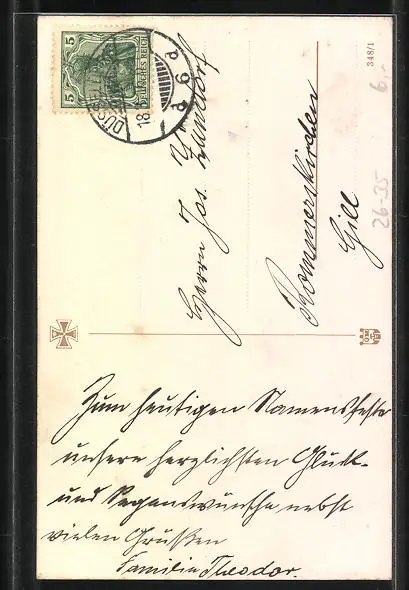 5
5
DEUTSCHES REICH
DÜSSEL
18.
d 6 d
348/1
6,-
26-35
Herrn Jos.
Rommerskirchen
Gill
Zum heutigen Namensfeste
unsere herzlichsten Glück-
und Segenswünsche nebst
vielen Grüßen
Familie Theodor.